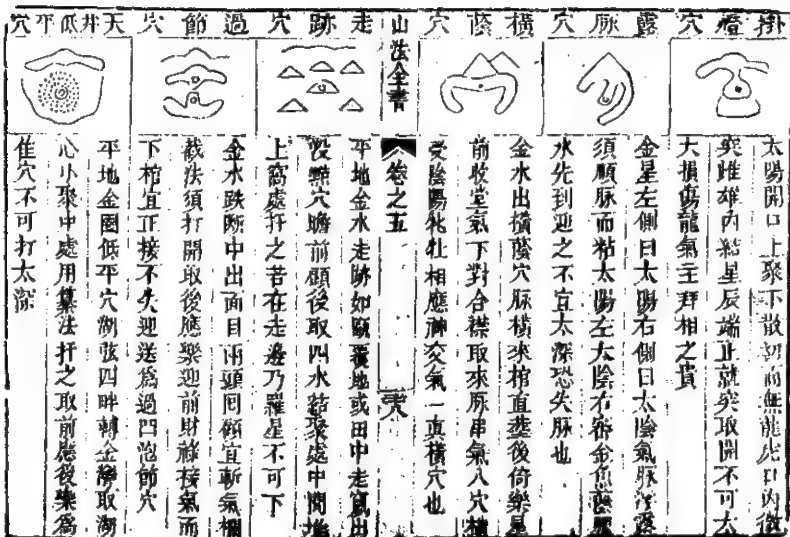 掛燈穴
太陽開口上聚下散初而無龍虎口內微
突雌雄內結星辰端正就突取開不可太
大損傷龍氣主拜相之貴
露脉穴
金星左側曰太陽右側曰太陰氣脉浮露
須順脉而粘太陽左太陰右審金魚
水先到迎之不宜太深恐失脉也
橫蔭穴
金水出橫蔭穴脉橫來棺直塟後倚樂星
前收堂氣下對合襟取來脉串氣入穴橫
受陰陽牝牡相應神交氣一直橫穴也
山法全書
卷之五
走跡穴
平地金水走跡如覆地或田中走竄出
沒無穴瞻前顧後取四水結聚處中間堆
上窩處扦之若在走邊乃羅星不可下
過節穴
金水跌斷中出面目兩頭囘顧宜斬氣
截法須打開取後應樂迎前財祿接氣而
下棺宜正接不失迎送爲過節穴
天井低平穴
平地金圈低平穴湖弦四畔轉金取湖
心小聚中處用法扦之取前應後樂爲
佳穴不可打太深